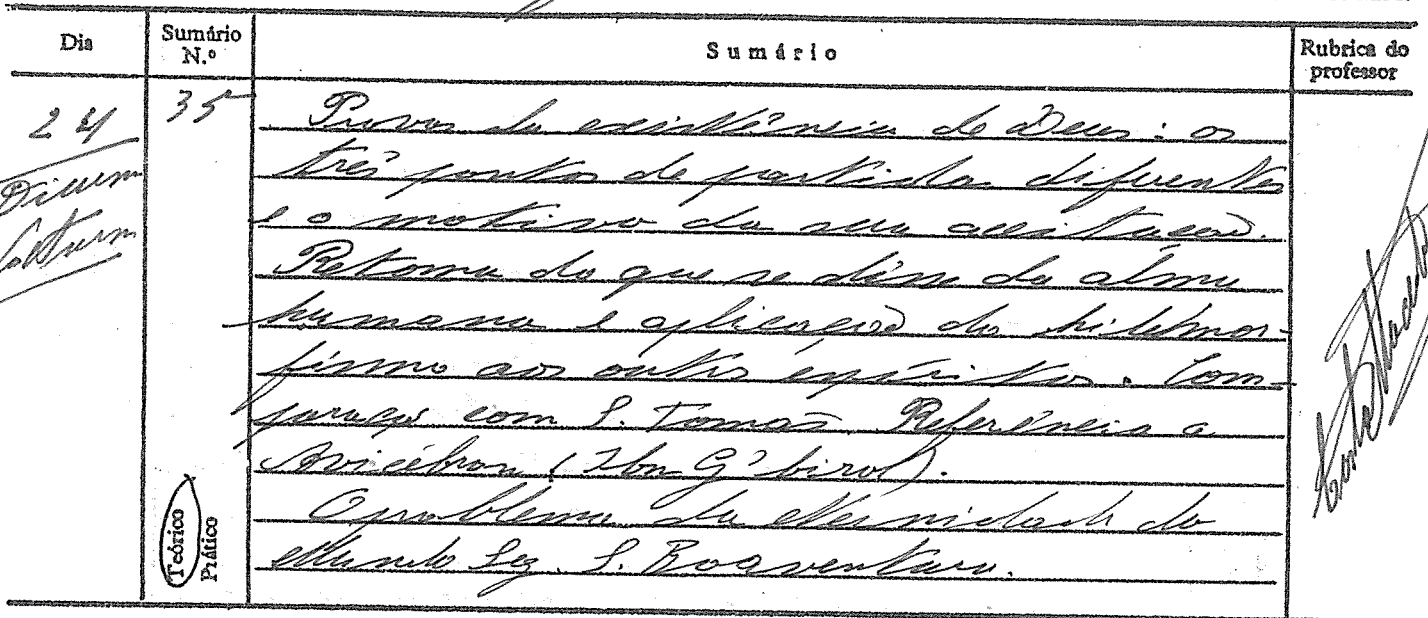 Dia
Sumário N.º
Sumário
Rubrica do professor
24
35
Provas da existência de Deus: os
três pontos de partida diferentes
e o motivo da sua aceitação.
Retoma do que se disse da alma
humana e aplicação do hilemor-
fismo aos outros espíritos. Com-
paração com S. Tomás. Referência a
Avicébron (Ibn G'birol).
O problema da eternidade do
Mundo seg. S. Boaventura.
Teórico
Prático